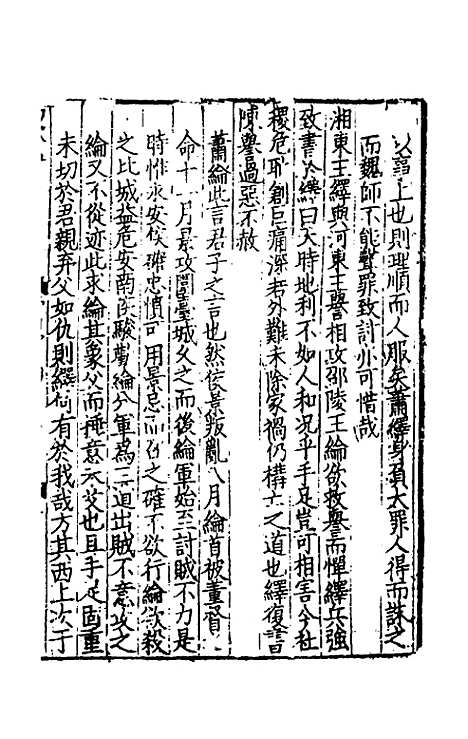 以蔀上也則理順而人服矣蕭繹身負大罪人得而誅之
而魏師不能聲罪致討亦可惜哉
湘東王繹與河東王譽相攻邵陵王綸欲救譽而憚繹兵強
致書於繹曰天時地利不如人和况乎手足豈可相害今社
稷危恥創巨痛深若外難未除家禍仍構亡之道也繹復書
陳譽過惡不赦
蕭綸此言君子之言也然侯景叛亂八月綸首被董督
命十一月景攻圍臺城久之而後綸軍始至討賊不力是
時惟永安侯確忠憤可用景忌而召之確不欲行綸欲殺
之比城益危安南侯駿勸綸分軍為三道出賊不意攻之
綸又不從迹此求綸其象父而捶意 父也且手足固重
未切於君親弃父如仇則繹何有於我哉方其西上次于